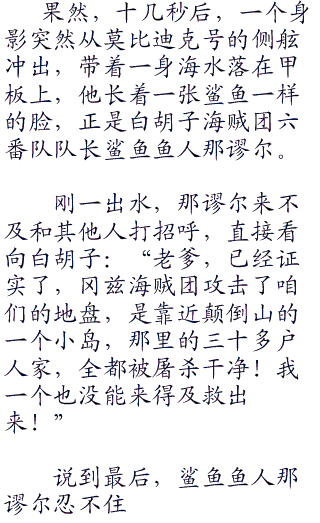 果然，十几秒后，一个身
影突然从莫比迪克号的侧舷
冲出，带着一身海水落在甲
板上，他长着一张鲨鱼一样
的脸，正是白胡子海贼团六
番队队长鲨鱼鱼人那谬尔。
刚一出水，那谬尔来不
及和其他人打招呼，直接看
向白胡子：“老爹，已经证
实了，冈兹海贼团攻击了咱
们的地盘，是靠近颠倒山的
一个小岛，那里的三十多户
人家，全都被屠杀干净！我
一个也没能来得及救出
来！”
说到最后，鲨鱼鱼人那
谬尔忍不住